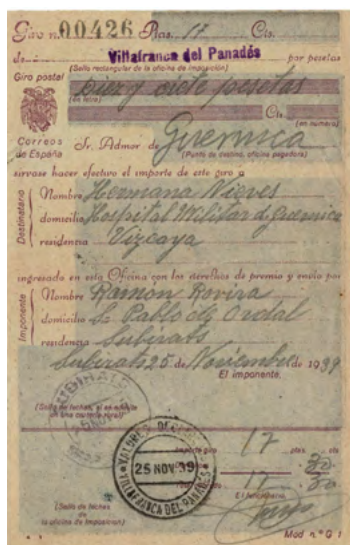 Giro n. 00426 Ptas. 17 Cts.
de Villafranca del Panadés por pesetas
(Sello rectangular de la oficina de imposición)
Giro postal
Diez y siete pesetas
(en letra)
Cts.
(en número)
Correos de España
Sr. Admor de Guernica
(Punto de destino, oficina pagadora)
sírvase hacer efectivo el importe de este giro a
Destinatario
Nombre Hermana Nieves
domicilio Hospital Militar de Guernica
residencia Vizcaya
ingresado en esta Oficina con los derechos de premio y envío por
Imponente
Nombre Ramón Rovira
domicilio S. Pablo de Ordal
residencia Subirats
Subirats 25 de Noviembre de 1939
El imponente,
SUBIRATS
(Sello de fechas, si se admite en una cartería rural)
VALORES DECLARADOS
25 NOV 39
VILLAFRANCA DEL PANADÉS
Importe giro 17 ptas. cts
30
17 30
El funcionario,
(Sello de fechas de la oficina de imposición)
Mod. n.º G 1